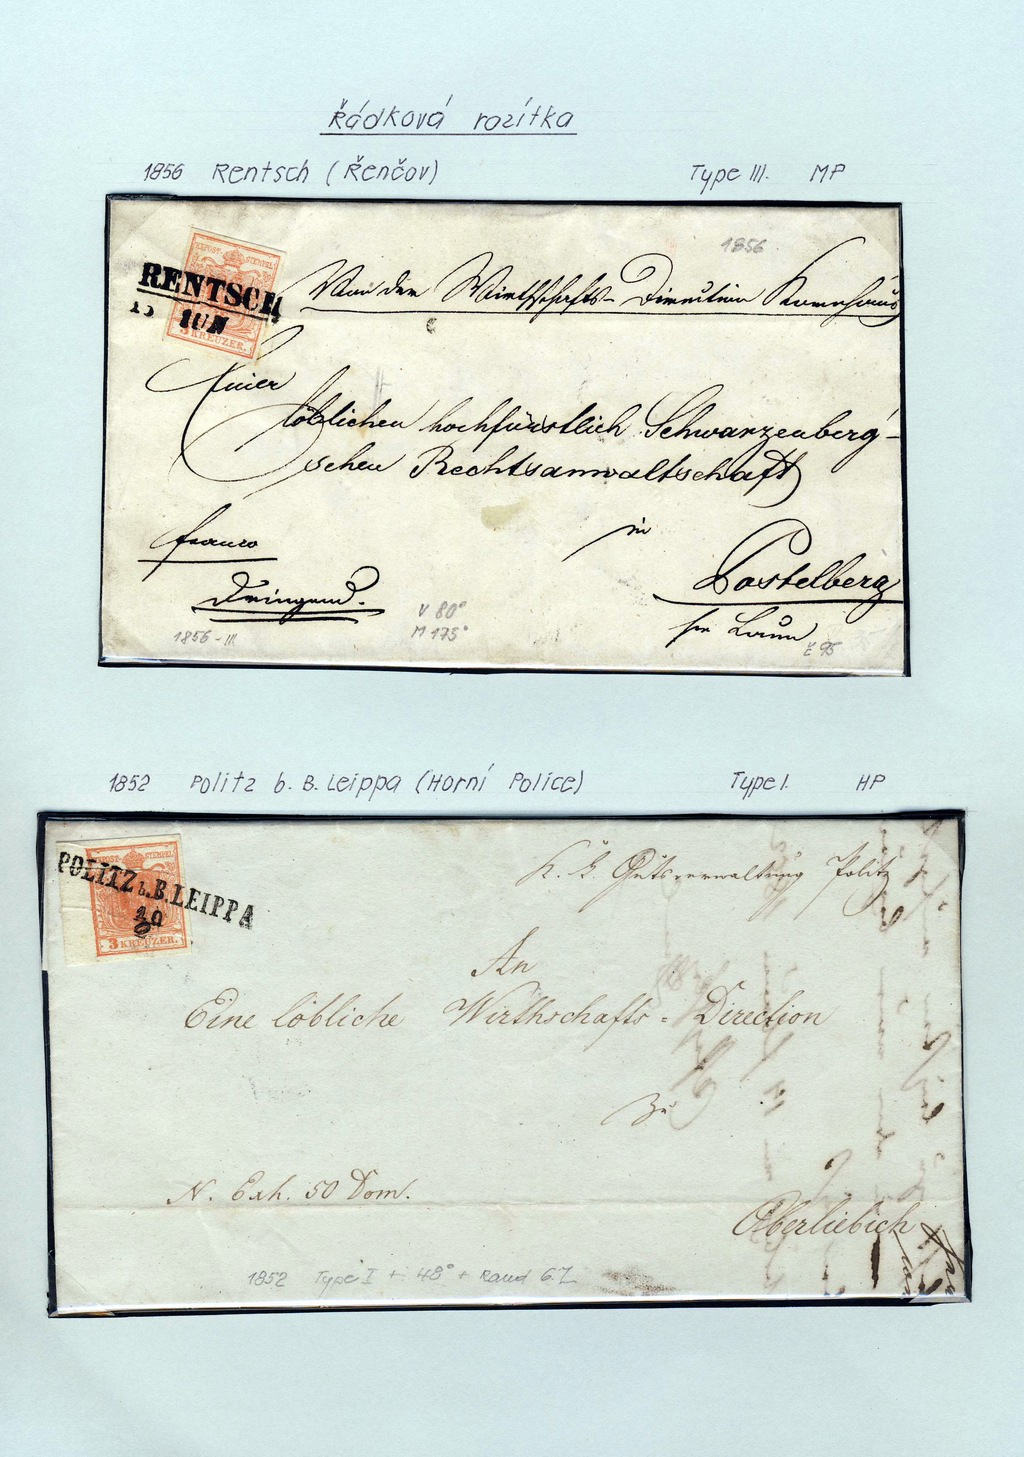 Řádková razítka
1856 Rentsch (Řenčov) Type III. MP
1856
K.K.POST-STEMPEL
RENTSCH
JUN
3 KREUZER.
Von der Wirthschafts-Direction Kornhaus
Einer
löblichen hochfürstlich Schwarzenberg-
schen Rechtsanwaltschaft
in
franco
Postelberg
Dringend.
per Laun
V 80°
M 175°
1856-III
č 95
1852 Politz b. B. Leippa (Horní Police) Type I. HP
POLITZ b.B.LEIPPA
3 KREUZER.
K. k. Gutsverwaltung Politz
An
Eine löbliche Wirthschafts=Direction
zu
N. Exh. 50 Dom.
Oberliebich
1852 Type I + 48° + Rand 6.7